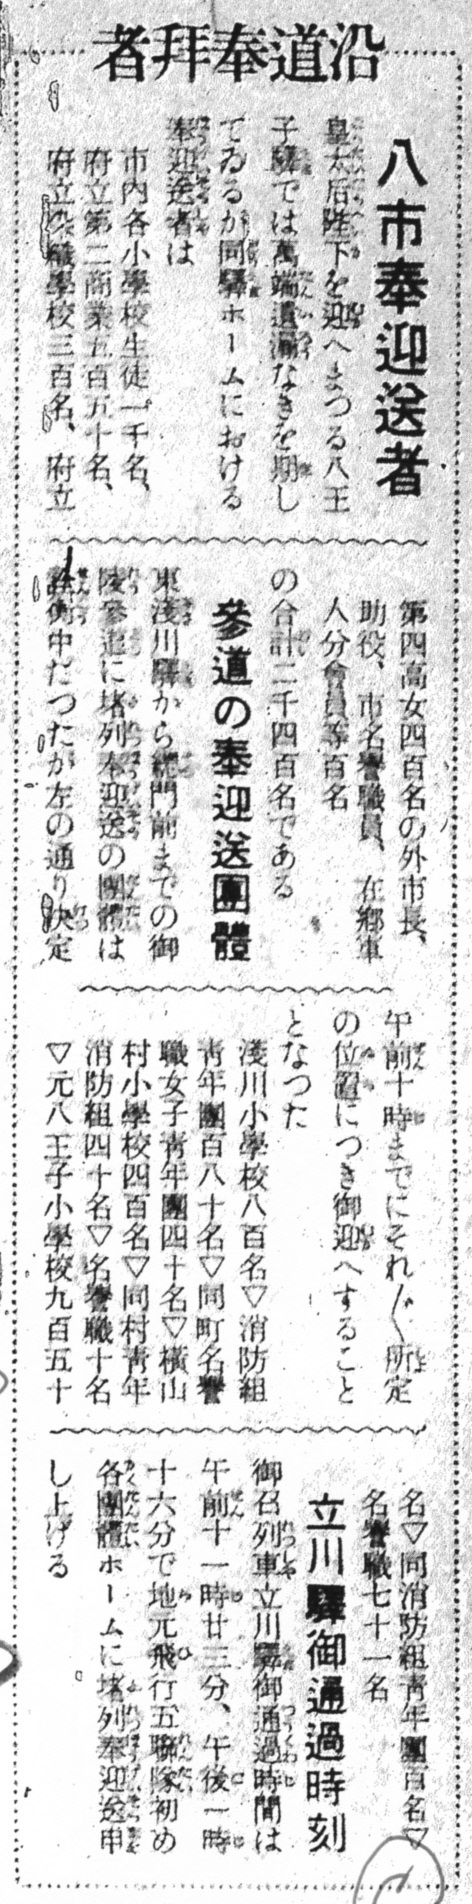 沿道奉拜者
八市奉迎送者
皇太后陛下を迎へまつる八王
子驛では萬端遺漏なきを期し
てゐるが同驛ホームにおける
奉迎送者は
市內各小學校生徒一千名、
府立第二商業五百五十名、
府立染織學校三百名、府立
第四高女四百名の外市長、
助役、市名譽職員、在鄕軍
人分會員等百名
の合計二千四百名である
參道の奉迎送團體
東淺川驛から總門前までの御
陵參道に堵列奉迎送の團體は
詮衡中だつたが左の通り決定
午前十時までにそれ〲所定
の位置につき御迎へすること
となつた
淺川小學校八百名▽消防組
靑年團百八十名▽同町名譽
職女子靑年團四十名▽橫山
村小學校四百名▽同村靑年
消防組四十名▽名譽職十名
▽元八王子小學校九百五十
名▽同消防組靑年團百名▽
名譽職七十一名
立川驛御通過時刻
御召列車立川驛御通過時間は
午前十一時廿三分、午後一時
十六分で地元飛行五聯隊初め
各團體ホームに堵列奉迎送申
し上げる